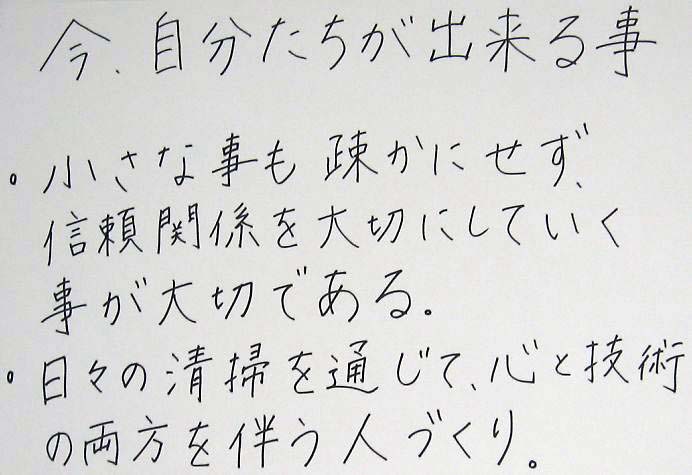 今、自分たちが出来る事
。小さな事も疎かにせず、
信頼関係を大切にしていく
事が大切である。
。日々の清掃を通じて、心と技術
の両方を伴う人づくり。